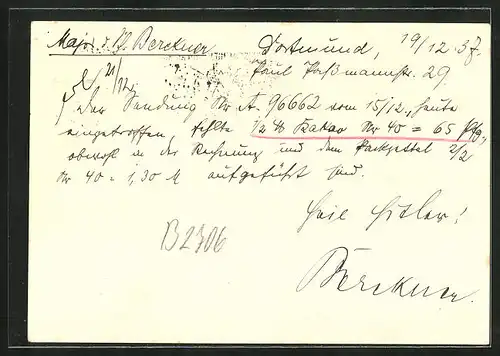 Major a. D. Berckner Dortmund, 19/12.37.
21/12. Paul Poßmannstr. 29
Der Sendung Nr A. 96662 vom 15/12., heute
eingetroffen, fehlte 1/2 ℔ Kakao Nr 40 = 65 Pfg.,
obwohl in der Rechnung und dem Packzettel 2/2
Nr 40 = 1,30 M aufgeführt sind.
Heil Hitler!
B2306
Berckner.